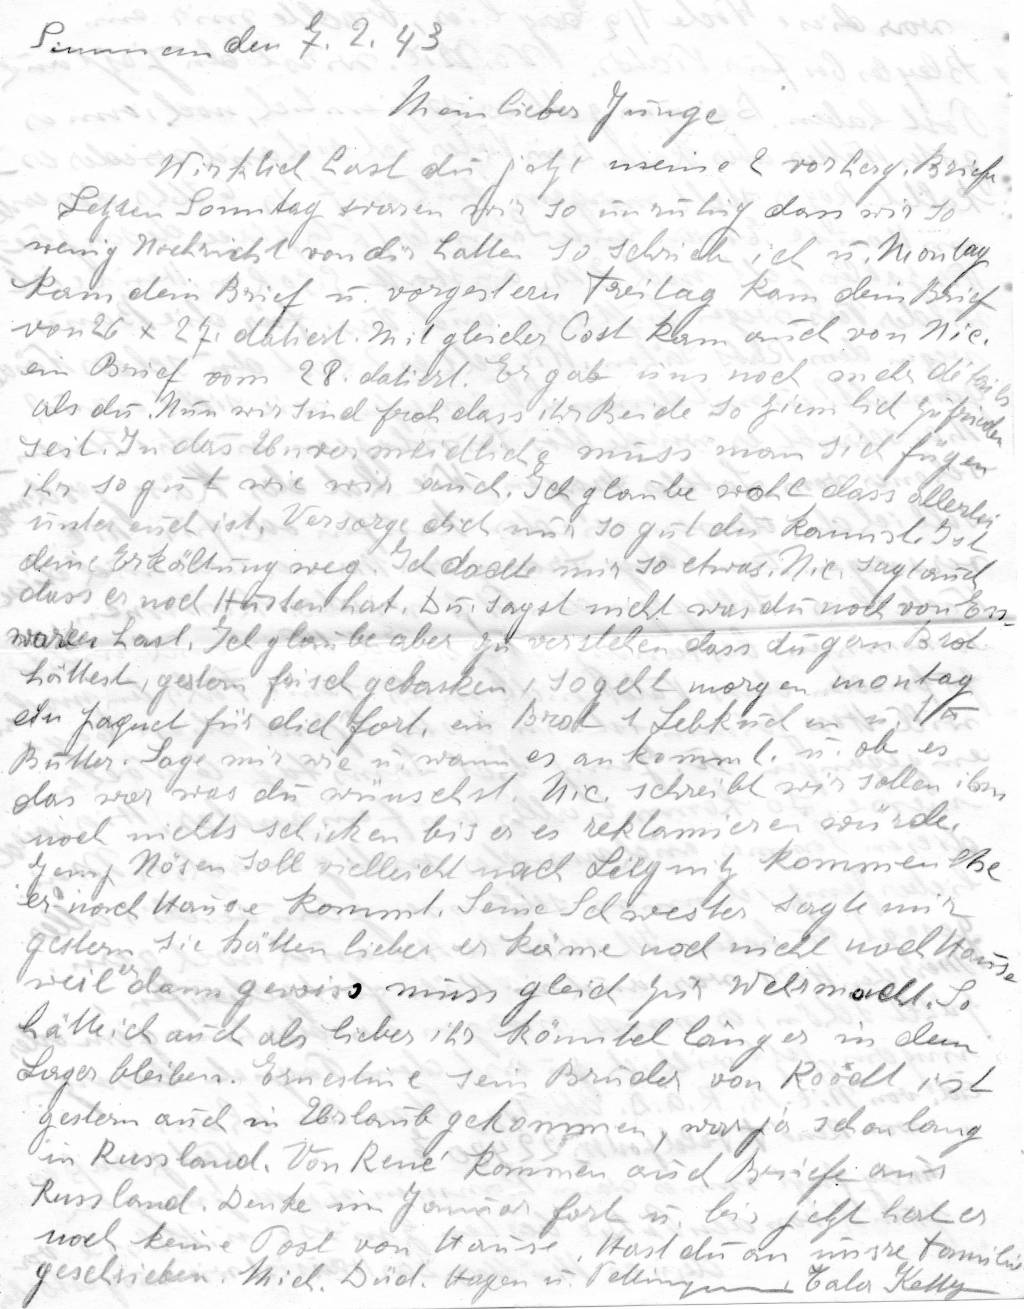 Simmern den 7. 2. 43
Mein lieber Junge
Wirklich hast du jetzt meine 2 vorherg. Briefe
Letzten Sonntag waren wir so unruhig dass wir so
wenig Nachricht von dir hatten so schrieb ich u. Montag
kam dein Brief u. vorgestern Freitag kam dein Brief
von 26 x 27. datiert. Mit gleicher Post kam auch von Nic.
ein Brief vom 28. datiert. Er gab uns noch mehr détails
als du. Nun wir sind froh dass ihr Beide so ziemlich zufrieden
seit. In das Unvermeidliche muss man sich fügen
ihr so gut wie wir auch. Ich glaube wohl dass allerlei
unter euch ist. Versorge dich nur so gut du kannst. Ist
deine Erkältung weg. Ich dachte mir so etwas. Nic. sagt auch
dass er noch Husten hat. Du sagst nicht was du noch von Ess-
waren hast. Ich glaube aber zu verstehen dass du gern Brot
hättest, gestern frisch gebacken, so geht morgen montag
ein Paquet für dich fort. ein Brot 1 Lebkuchen u. 1/2
Butter. Sage mir wie u. wann es ankommt. u. ob es
das war was du wünschst. Nic. schreibt wir sollen ihm
noch nichts schicken bis er es reklamieren würde.
Jemp Nösen soll vielleicht nach Liegnitz kommen ehe
er nach Hause kommt. Seine Schwester sagte mir
gestern sie hätten lieber er käme noch nicht nach Hause
weil er dann gewiss muss gleich zur Wehrmacht. So
hätte ich auch als lieber ihr könntet länger in dem
Lager bleiben. Ernestine sein Bruder von Roodt ist
gestern auch in Urlaub gekommen, war ja schon lang
in Russland. Von René kommen auch Briefe aus
Russland. Denke im Januar fort u. bis jetzt hat er
noch keine Post von Hause. Hast du an unsre Familie
geschrieben. Mich. Düd. Hagen u. Kelly